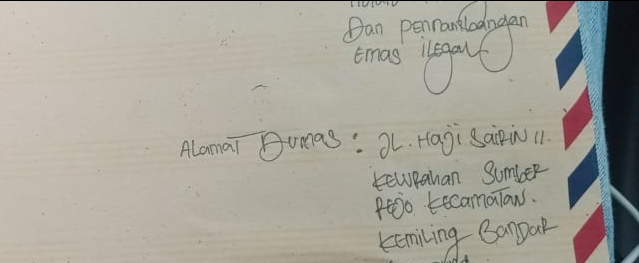 Dan penambangan
Emas ilegal
Alamat Dumas : JL. Haji Sairin 11.
Kelurahan Sumber
Rejo Kecamatan.
Kemiling Bandar